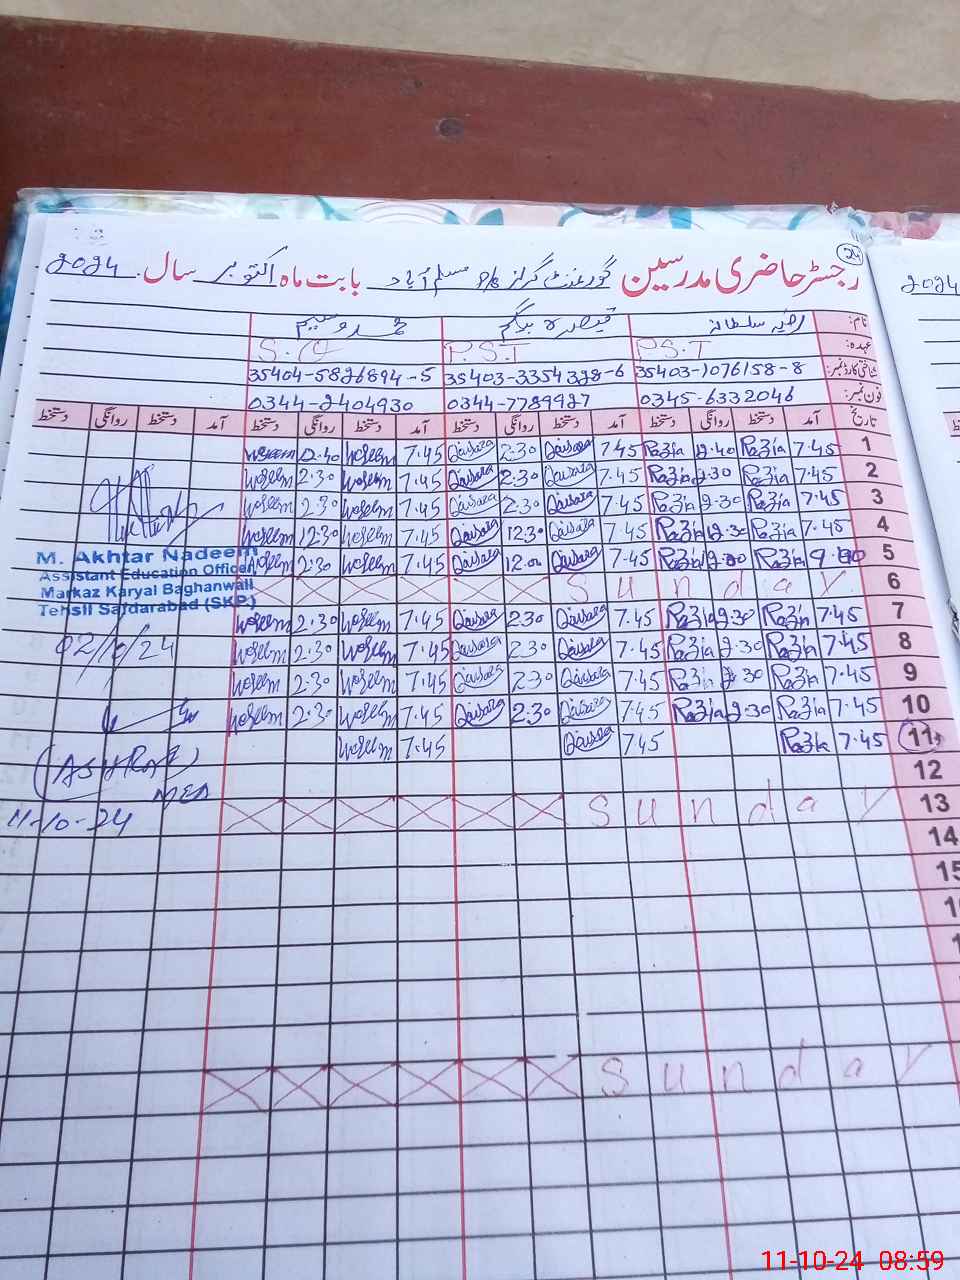 24
رجسٹر حاضری مدرسین گورنمنٹ گرلز P/S مسلم آباد بابت ماہ اکتوبر سال 2024
2024
نام: رضیہ سلطانہ قیصرہ بیگم محمد وسیم
عہدہ: P.S.T P.S.T
شناختی کارڈ نمبر: 35403-1076158-8 35403-3354328-6 35404-5826894-5
فون نمبر: 0345-6332046 0344-7789927 0344-2404930
تاریخ آمد دستخط روانگی دستخط آمد دستخط روانگی دستخط آمد دستخط روانگی دستخط آمد دستخط روانگی دستخط
1 7.45 Razia 2.40 Razia 7.45 Qaisara 2:30 Qaisara 7.45 Waseem Waseem
2 7.45 Razia 2.30 Razia 7.45 Qaisara 2:30 Qaisara 7.45 Waseem 2:30 Waseem
3 7.45 Razia 2.30 Razia 7.45 Qaisara 2:30 Qaisara 7.45 Waseem 2:30 Waseem
4 7.45 Razia 12.30 Razia 7.45 Qaisara 12:30 Qaisara 7.45 Waseem 12:30 Waseem
5 Razia Razia 7.45 Qaisara 12.00 Qaisara 7.45 Waseem 2:30 Waseem
6 Sunday
7 7.45 Razia 2.30 Razia 7.45 Qaisara 2.30 Qaisara 7.45 Waseem 2:30 Waseem
8 7.45 Razia 2.30 Razia 7.45 Qaisara 2.30 Qaisara 7.45 Waseem 2:30 Waseem
9 7.45 Razia 2.30 Razia 7.45 Qaisara 2:30 Qaisara 7.45 Waseem 2:30 Waseem
10 7.45 Razia 2.30 Razia 7.45 Qaisara 2:30 Qaisara 7.45 Waseem 2:30 Waseem
11 7.45 Razia 7.45 Qaisara 7.45 Waseem
12
13 Sunday
14
15
Sunday
M. Akhtar Nadeem
Assistant Education Officer
Markaz Karyal Baghanwali
Tehsil Safdarabad (SKP.)
02/10/24
(ASHRAF)
MEA
11-10-24
11-10-24 08:59